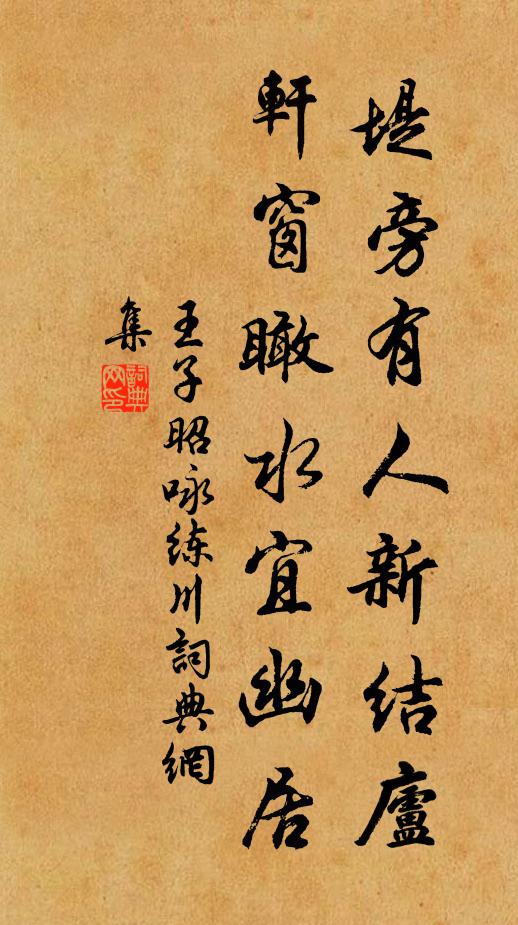 堤旁有人新結廬
軒窗瞰水宜幽居
王子昭咏练川詞典網
集
詞典
网印